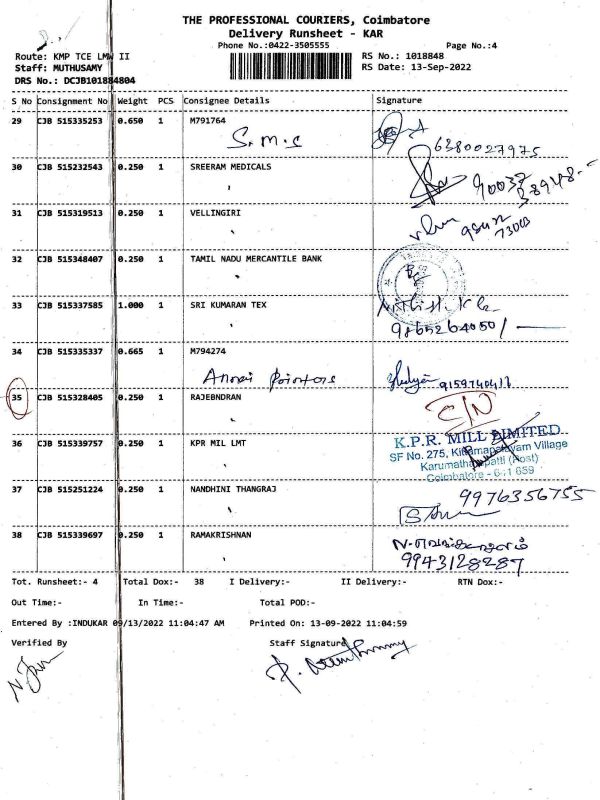 THE PROFESSIONAL COURIERS, Coimbatore
Delivery Runsheet - KAR
Phone No.:0422-3505555 Page No.:4
Route: KMP TCE LMW II RS No.: 1018848
Staff: MUTHUSAMY RS Date: 13-Sep-2022
DRS No.: DCJB101884804
S No Consignment No Weight PCS Consignee Details Signature
29 CJB 515335253 0.650 1 M791764
S.M.C 6380027975
30 CJB 515232543 0.250 1 SREERAM MEDICALS
31 CJB 515319513 0.250 1 VELLINGIRI
32 CJB 515348407 0.250 1 TAMIL NADU MERCANTILE BANK
33 CJB 515337585 1.000 1 SRI KUMARAN TEX
9865264050/-
34 CJB 515335337 0.665 1 M794274
35 CJB 515328405 0.250 1 RAJEBNDRAN
36 CJB 515339757 0.250 1 KPR MIL LMT
K.P.R. MILL LIMITED
SF No. 275, Kittampalayam Village
Karumathampatti (Post)
Coimbatore - 641 659
37 CJB 515251224 0.250 1 NANDHINI THANGRAJ
9976356755
38 CJB 515339697 0.250 1 RAMAKRISHNAN
9943128287
Tot. Runsheet:- 4 Total Dox:- 38 I Delivery:- II Delivery:- RTN Dox:-
Out Time:- In Time:- Total POD:-
Entered By :INDUKAR 09/13/2022 11:04:47 AM Printed On: 13-09-2022 11:04:59
Verified By Staff Signature